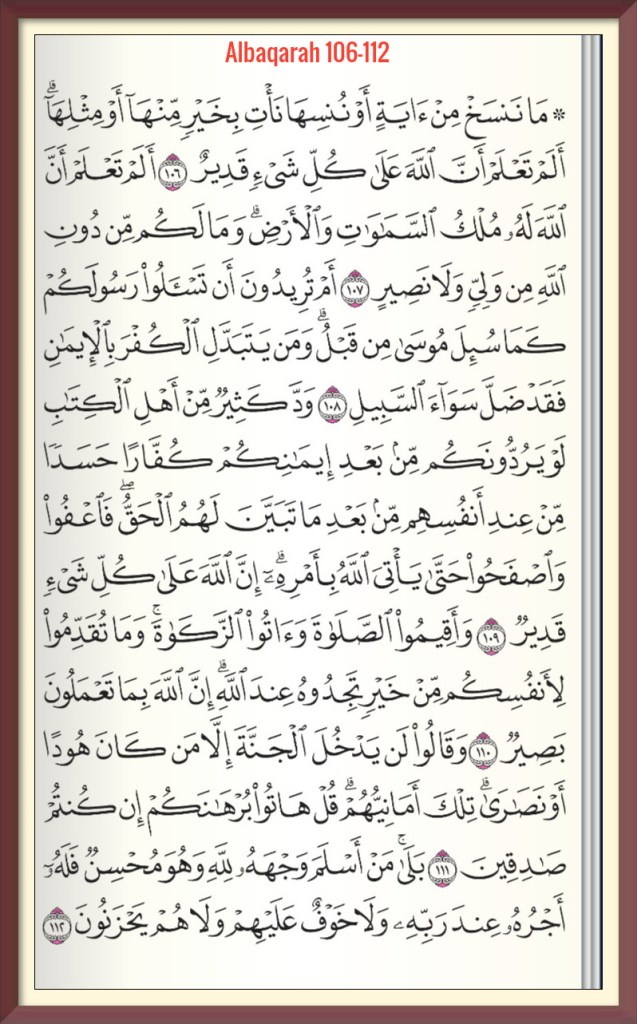 Albaqarah 106-112
۞ مَا نَنسَخۡ مِنۡ ءَايَةٍ أَوۡ نُنسِهَا نَأۡتِ بِخَيۡرٖ مِّنۡهَآ أَوۡ مِثۡلِهَآۗ
أَلَمۡ تَعۡلَمۡ أَنَّ ٱللَّهَ عَلَىٰ كُلِّ شَيۡءٖ قَدِيرٌ ١٠٦ أَلَمۡ تَعۡلَمۡ أَنَّ
ٱللَّهَ لَهُۥ مُلۡكُ ٱلسَّمَٰوَٰتِ وَٱلۡأَرۡضِۗ وَمَا لَكُم مِّن دُونِ
ٱللَّهِ مِن وَلِيّٖ وَلَا نَصِيرٍ ١٠٧ أَمۡ تُرِيدُونَ أَن تَسۡـَٔلُواْ رَسُولَكُمۡ
كَمَا سُئِلَ مُوسَىٰ مِن قَبۡلُۗ وَمَن يَتَبَدَّلِ ٱلۡكُفۡرَ بِٱلۡإِيمَٰنِ
فَقَدۡ ضَلَّ سَوَآءَ ٱلسَّبِيلِ ١٠٨ وَدَّ كَثِيرٞ مِّنۡ أَهۡلِ ٱلۡكِتَٰبِ
لَوۡ يَرُدُّونَكُم مِّنۢ بَعۡدِ إِيمَٰنِكُمۡ كُفَّارًا حَسَدٗا
مِّنۡ عِندِ أَنفُسِهِم مِّنۢ بَعۡدِ مَا تَبَيَّنَ لَهُمُ ٱلۡحَقُّۖ فَٱعۡفُواْ
وَٱصۡفَحُواْ حَتَّىٰ يَأۡتِيَ ٱللَّهُ بِأَمۡرِهِۦٓۗ إِنَّ ٱللَّهَ عَلَىٰ كُلِّ شَيۡءٖ
قَدِيرٞ ١٠٩ وَأَقِيمُواْ ٱلصَّلَوٰةَ وَءَاتُواْ ٱلزَّكَوٰةَۚ وَمَا تُقَدِّمُواْ
لِأَنفُسِكُم مِّنۡ خَيۡرٖ تَجِدُوهُ عِندَ ٱللَّهِۗ إِنَّ ٱللَّهَ بِمَا تَعۡمَلُونَ
بَصِيرٞ ١١٠ وَقَالُواْ لَن يَدۡخُلَ ٱلۡجَنَّةَ إِلَّا مَن كَانَ هُودًا
أَوۡ نَصَٰرَىٰۗ تِلۡكَ أَمَانِيُّهُمۡۗ قُلۡ هَاتُواْ بُرۡهَٰنَكُمۡ إِن كُنتُمۡ
صَٰدِقِينَ ١١١ بَلَىٰۚ مَنۡ أَسۡلَمَ وَجۡهَهُۥ لِلَّهِ وَهُوَ مُحۡسِنٞ فَلَهُۥٓ
أَجۡرُهُۥ عِندَ رَبِّهِۦ وَلَا خَوۡفٌ عَلَيۡهِمۡ وَلَا هُمۡ يَحۡزَنُونَ ١١٢